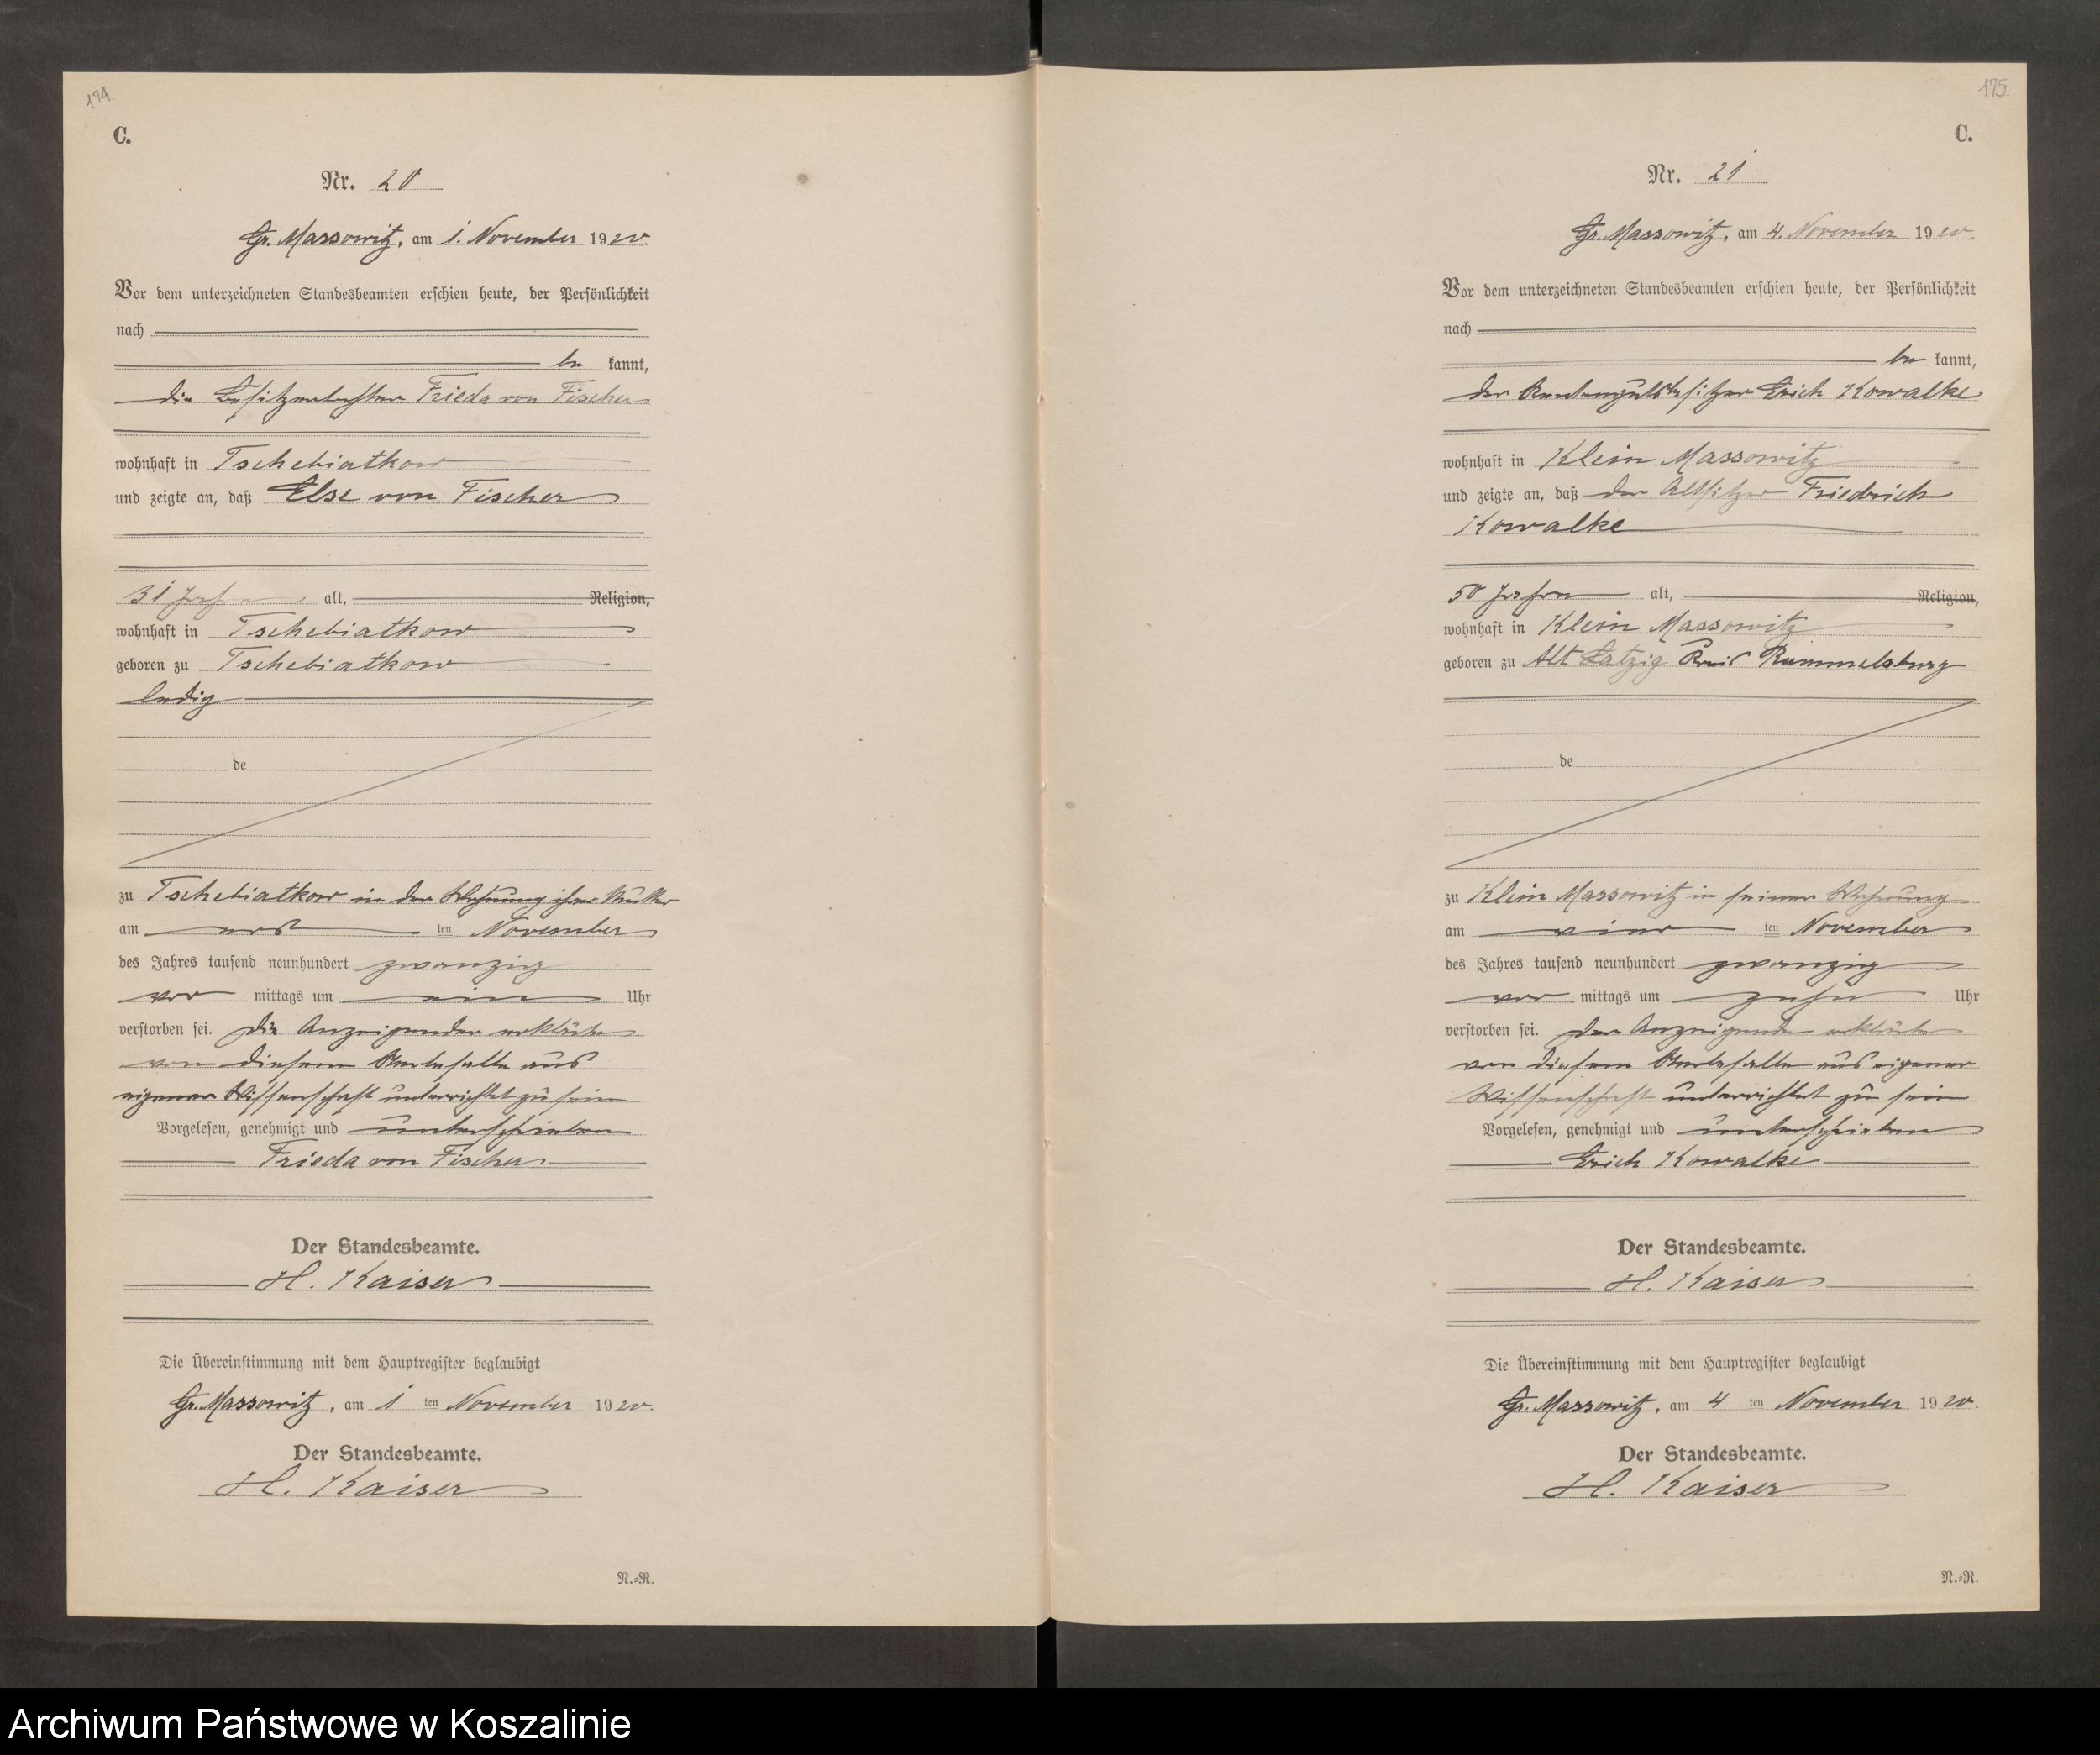 174.
C.
Nr. 20
Gr. Massowitz, am 1. November 1920.
Vor dem unterzeichneten Standesbeamten erschien heute, der Persönlichkeit
nach
be kannt,
die Besitzertochter Frieda von Fischer
wohnhaft in Tschebiatkow
und zeigte an, daß Else von Fischer
31 Jahre alt, Religion,
wohnhaft in Tschebiatkow
geboren zu Tschebiatkow
ledig
de
zu Tschebiatkow in der Wohnung ihrer Mutter
am ers ten November
des Jahres tausend neunhundert zwanzig
vor mittags um ein Uhr
verstorben sei. Die Anzeigende erklärte
von diesem Sterbefalle aus
eigener Wissenschaft unterrichtet zu sein
Vorgelesen, genehmigt und unterschrieben
Frieda von Fischer
Der Standesbeamte.
H. Kaiser
Die Übereinstimmung mit dem Hauptregister beglaubigt
Gr. Massowitz, am 1 ten November 1920.
Der Standesbeamte.
H. Kaiser
N.=R.
175.
C.
Nr. 21
Gr. Massowitz, am 4. November 1920.
Vor dem unterzeichneten Standesbeamten erschien heute, der Persönlichkeit
nach
be kannt,
der Rentengutsbesitzer Erich Kowalke
wohnhaft in Klein Massowitz
und zeigte an, daß der Altsitzer Friedrich
Kowalke
50 Jahre alt, Religion,
wohnhaft in Klein Massowitz
geboren zu Alt Latzig Kreis Rummelsburg
de
zu Klein Massowitz in seiner Wohnung
am vier ten November
des Jahres tausend neunhundert zwanzig
vor mittags um zehn Uhr
verstorben sei. Der Anzeigende erklärte
von diesem Sterbefalle aus eigener
Wissenschaft unterrichtet zu sein
Vorgelesen, genehmigt und unterschrieben
Erich Kowalke
Der Standesbeamte.
H. Kaiser
Die Übereinstimmung mit dem Hauptregister beglaubigt
Gr. Massowitz, am 4 ten November 1920.
Der Standesbeamte.
H. Kaiser
N.=R.
Archiwum Państwowe w Koszalinie